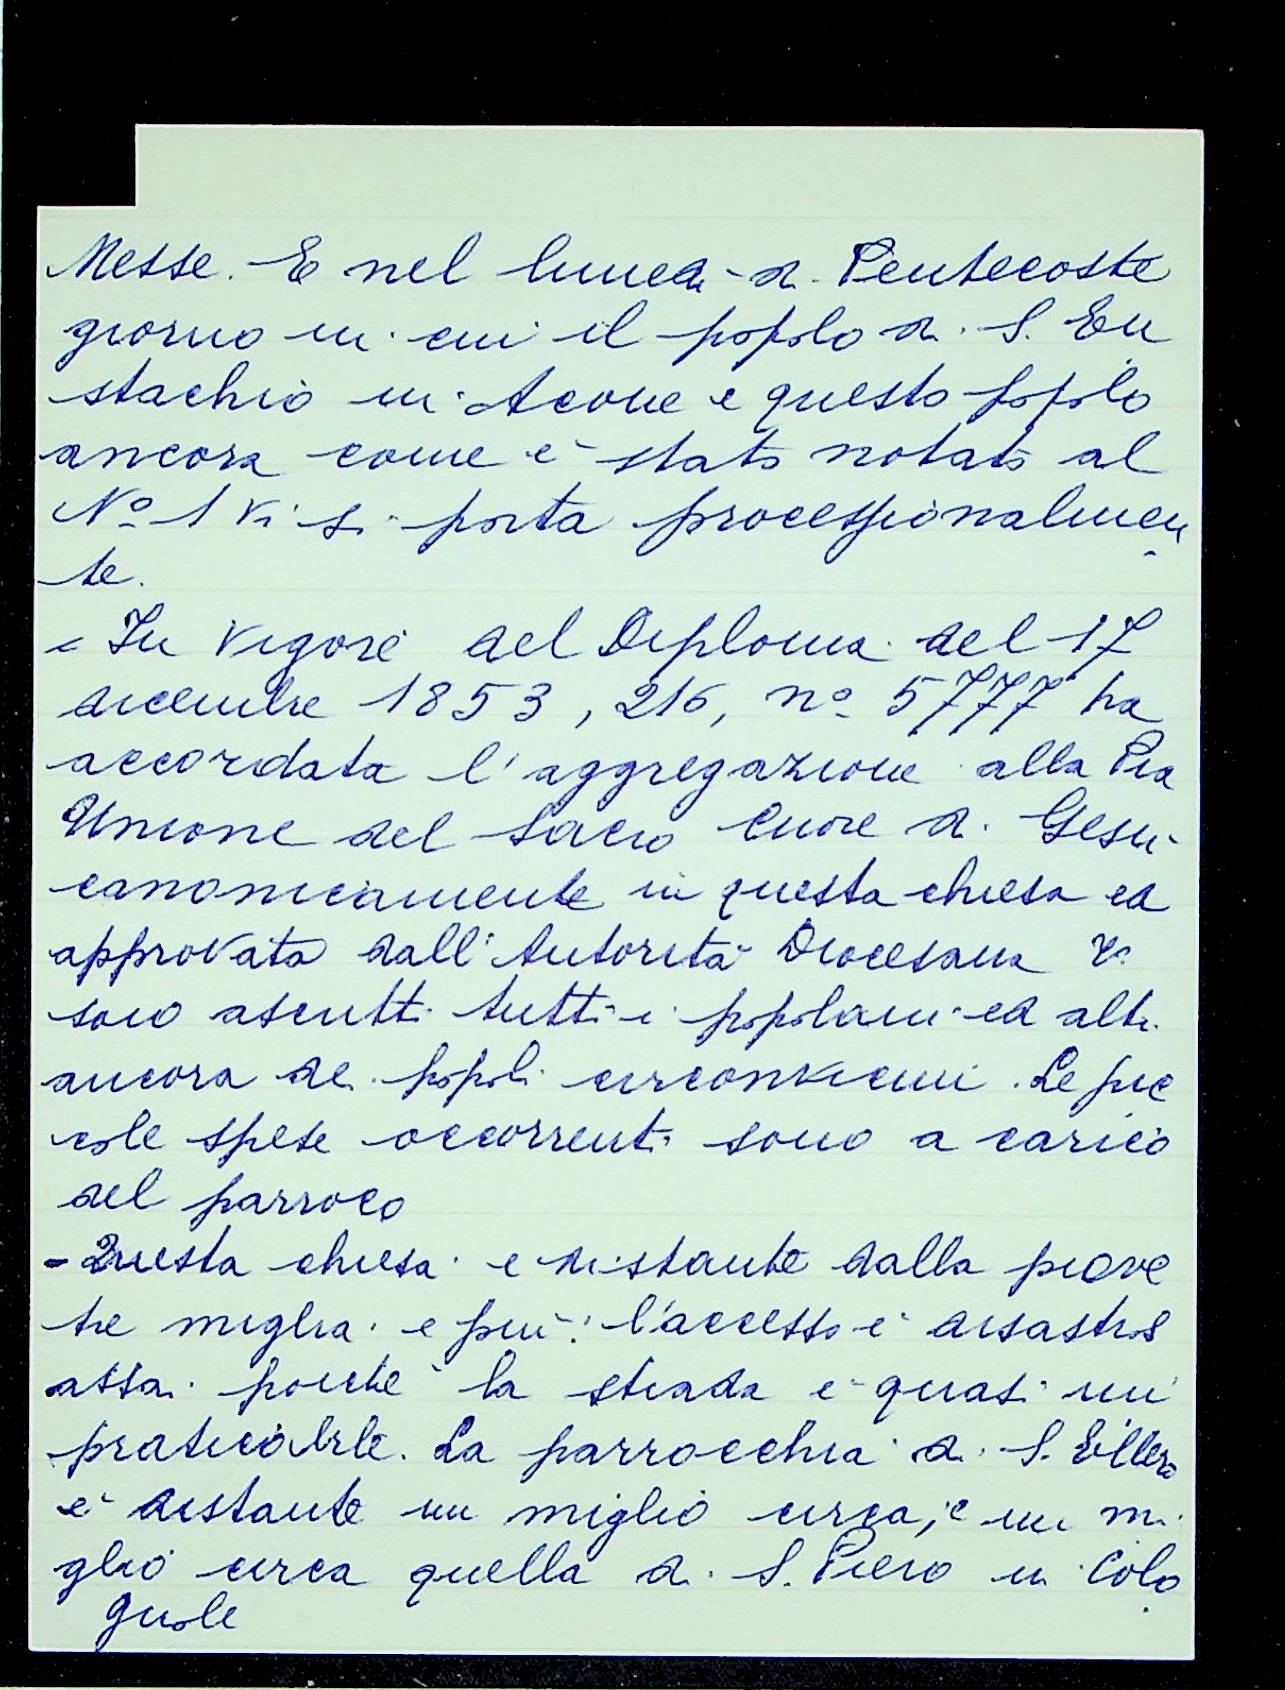 Messe. E nel lunedì di Pentecoste
giorno in cui il popolo di S. Eu
stachio in Acone e questo popolo
ancora come è stato notato al
Nº 1 vi si porta processionalmen
te.
- In vigore del Diploma del 17
dicembre 1853, 216, nº 5777 ha
accordata l'aggregazione alla Pia
Unione del Sacro Cuore di Gesù
canonicamente in questa chiesa ed
approvata dall'Autorità Diocesana vi
sono ascritti tutti i popolani ed altri
ancora dei popoli circonvicini. Le pic
cole spese occorrenti sono a carico
del parroco
- Questa chiesa è distante dalla pieve
tre miglia e più: l'accesso è disastros
assai poichè la strada è quasi im
praticabile. La parrocchia di S. Ellero
è distante un miglio circa, e un mi
glio circa quella di S. Piero in Colo
gnole